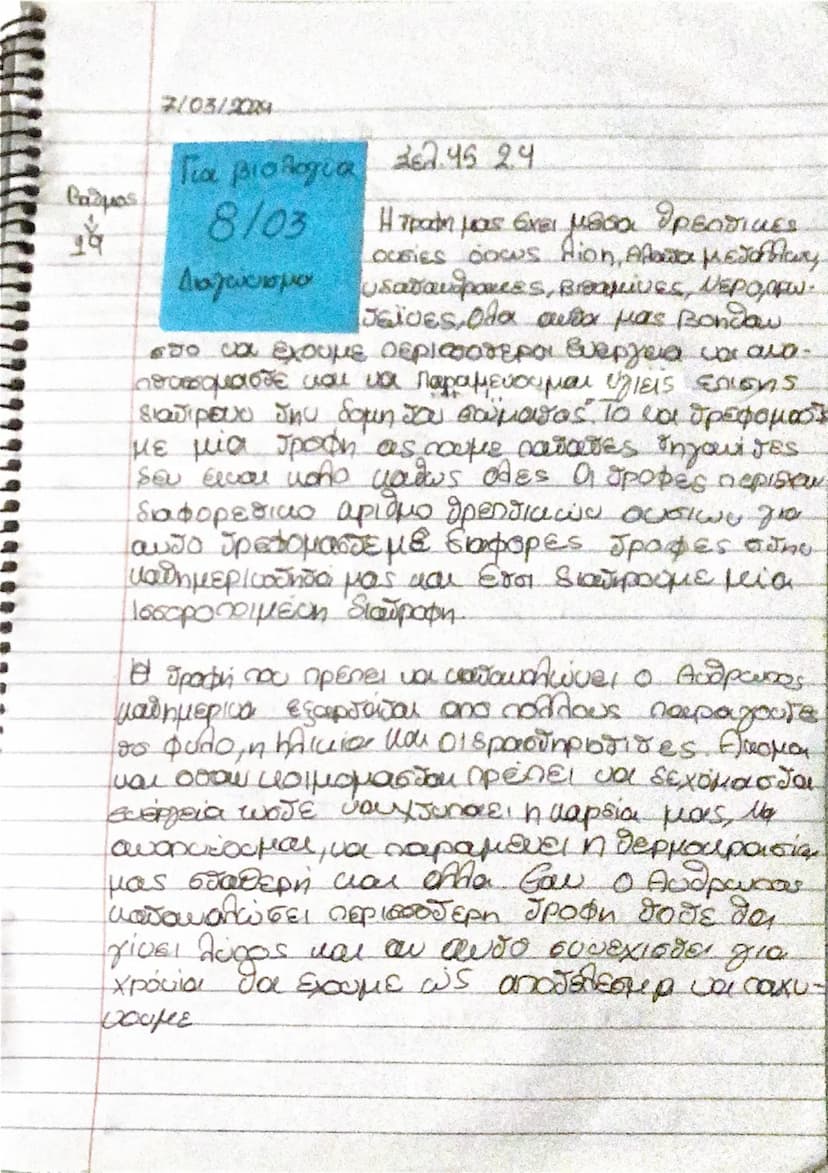 7/03/2024
Για βιολογία
8/03
Διαγωνισμα
Βαθμος
19
Σελ.45 2.4
Η τροφη μας εχει μεσα θρεπτικες
ουσίες όπως λίπη, Αλατα μεταλλων,
υδατανθρακες, βιταμίνες, Νερο, πρω-
τεϊνες, Ολα αυτα μας βοηθαν
στο να έχουμε περισσοτερη ενεργεια να ανα-
πτυσσομαστε και να παραμενουμαι υγιεις επισης
διατιρουν την δομη του σώματος. Το να τρεφομαστ
με μία τροφη ας πουμε πατατες τηγανιτες
δεν ειναι καλο καθως ολες Οι τροφες περιεχουν
διαφορετικο αριθμο θρεπτικων ουσιων για
αυτο τρεφομαστε με διαφορες τροφες στην
καθημερινοτητα μας και ετσι διατηρουμε μια
Ισσοροποιμένη διατροφη.
Η τροφή που πρέπει να καταναλώνει ο Ανθρωπος
καθημερινα εξαρταται απο πολλους παραγοντε
το φυλο, η ηλικια και οι δραστηριοτιτες. Ακομα
και οταν κοιμομασται πρεπει να δεχόμασται
ενέργεια ωστε να χτυπαει η καρδία μας, Να
αναπνεουμαι, να παραμενει η θερμοκρασία
μας σταθερή και αλλα. Εαν ο Ανθρωπος
καταναλώσει περισσότερη τροφη τοτε θα
γίνει λίπος και αν αυτο συνεχιστει για
χρόνια θα εχουμε ώς αποτέλεσμα να παχυ-
νουμε